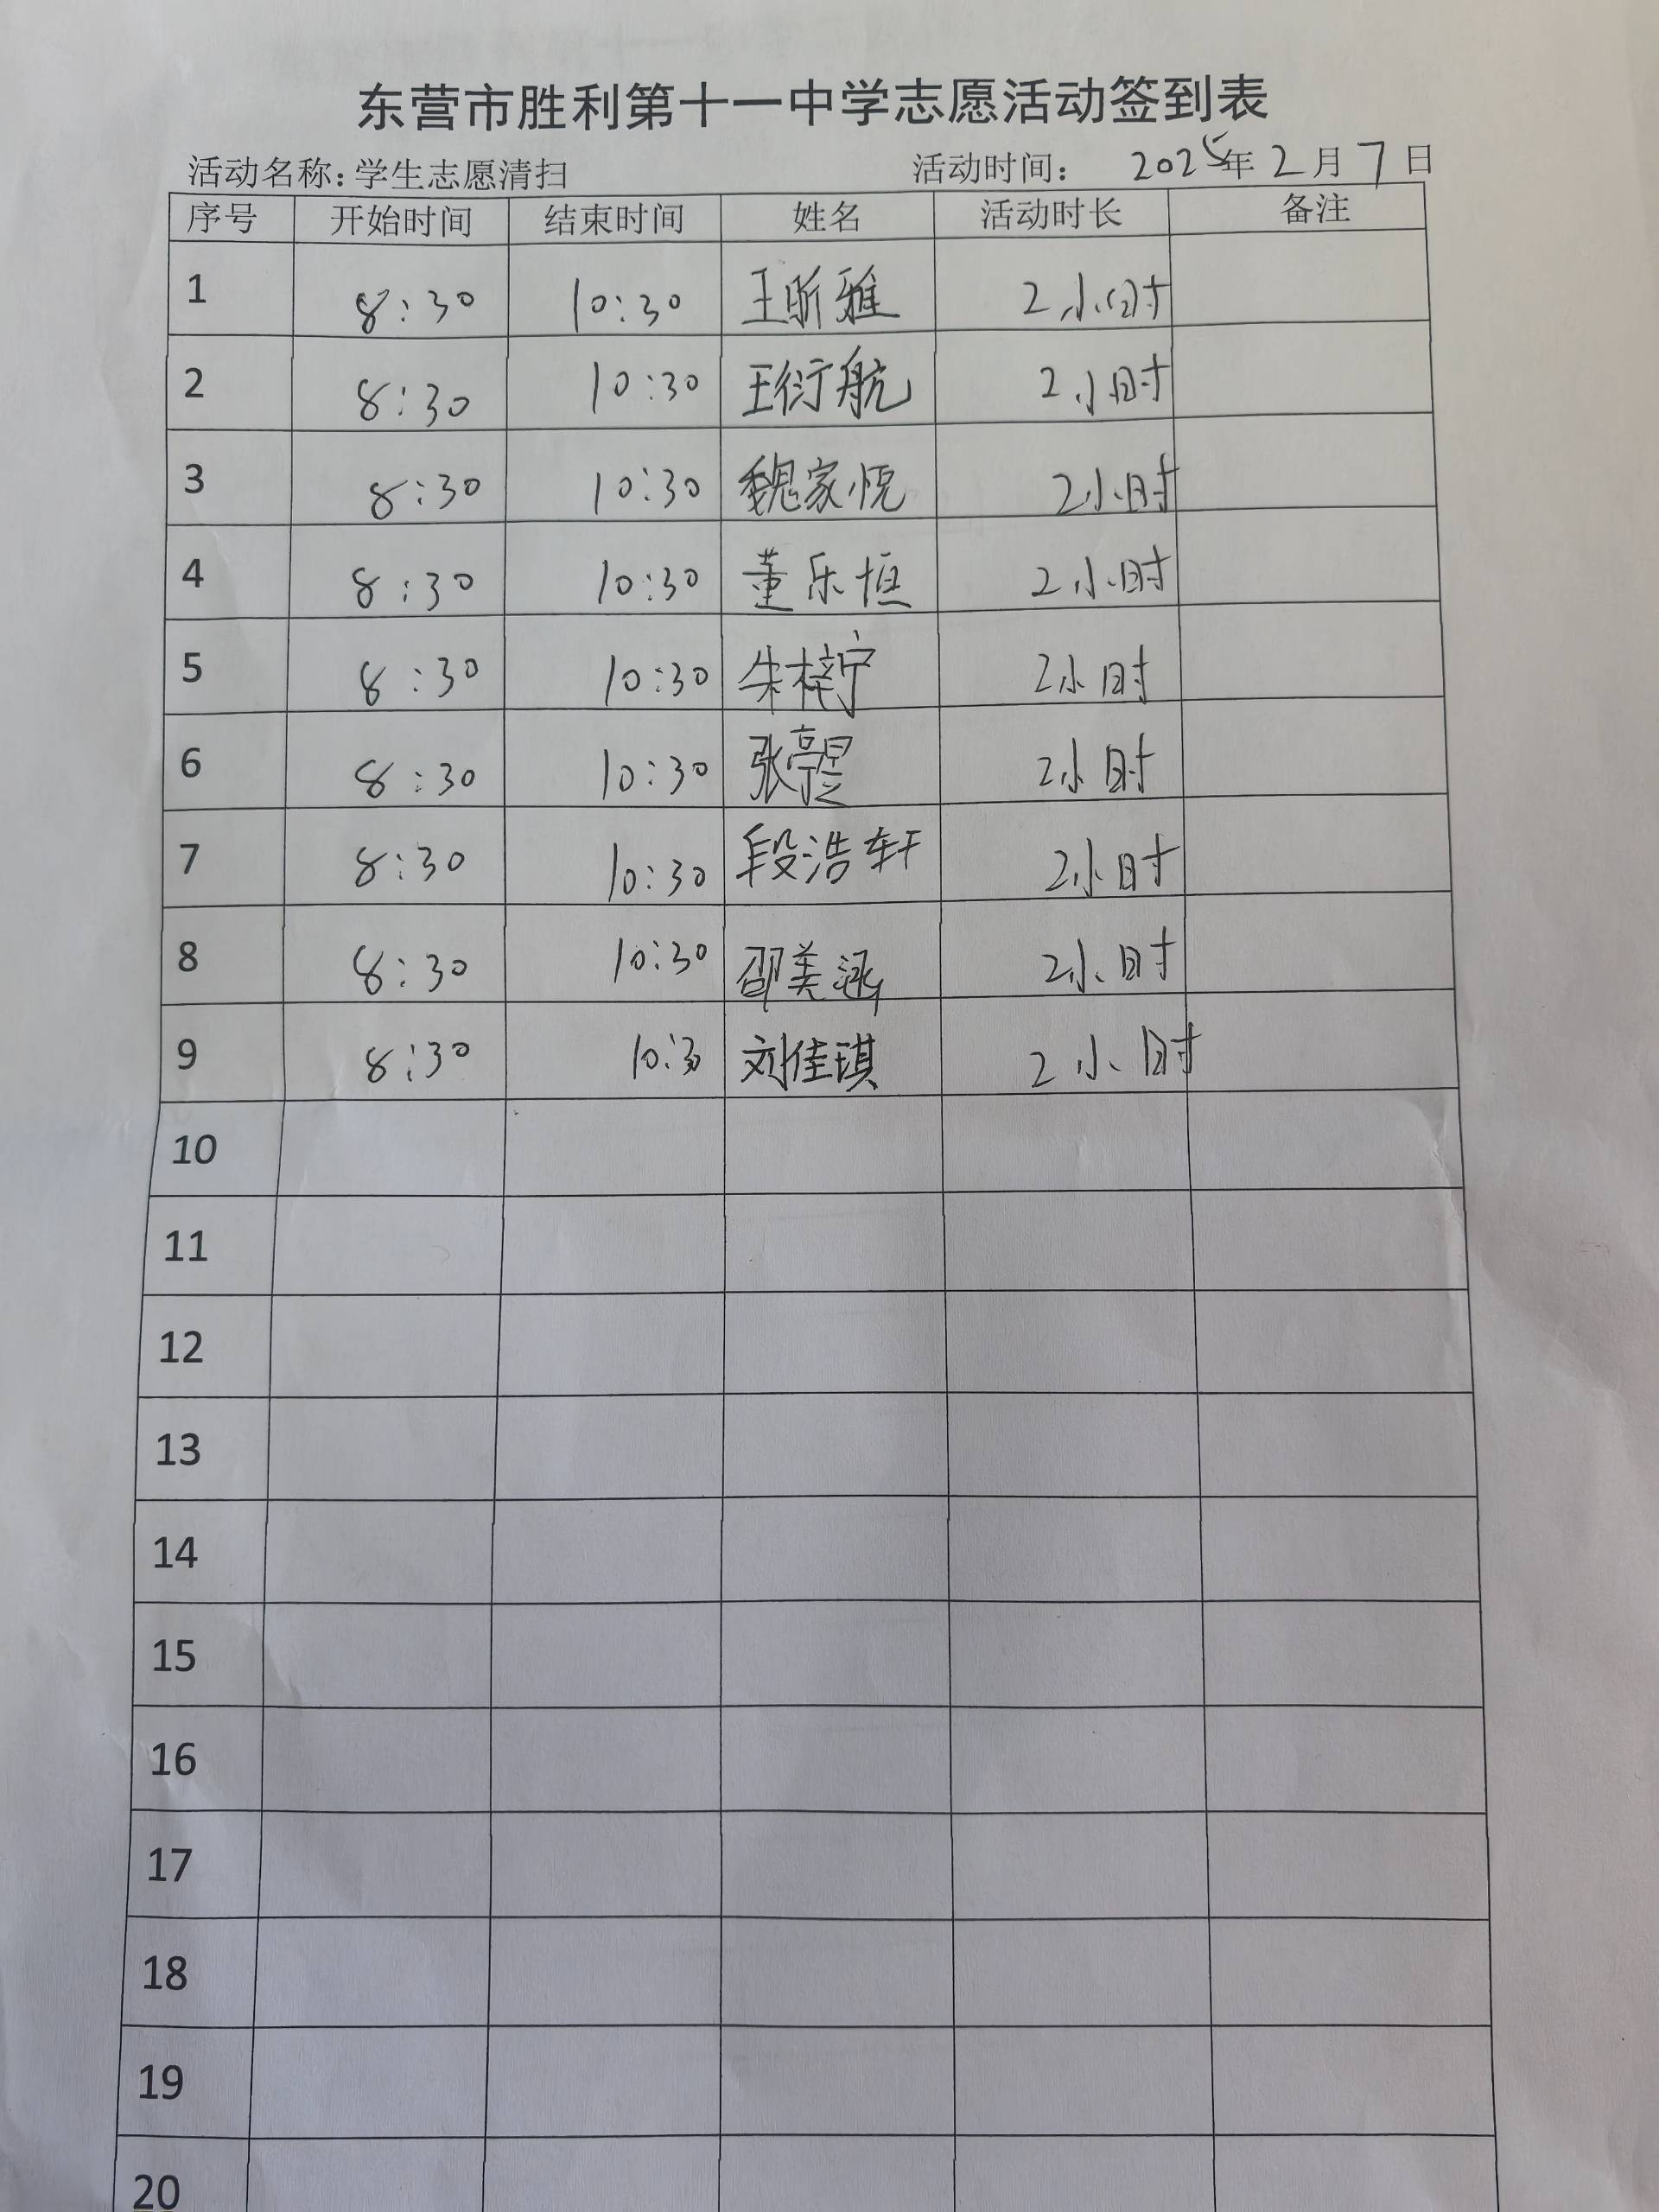 东营市胜利第十一中学志愿活动签到表
活动名称:学生志愿清扫 活动时间: 2025年2月7日
序号 开始时间 结束时间 姓名 活动时长 备注
1 8:30 10:30 王昕雅 2小时
2 8:30 10:30 王衍航 2小时
3 8:30 10:30 魏家悦 2小时
4 8:30 10:30 董乐恒 2小时
5 8:30 10:30 朱梓宁 2小时
6 8:30 10:30 张亭昱 2小时
7 8:30 10:30 段浩轩 2小时
8 8:30 10:30 邵美涵 2小时
9 8:30 10:30 刘佳琪 2小时
10
11
12
13
14
15
16
17
18
19
20